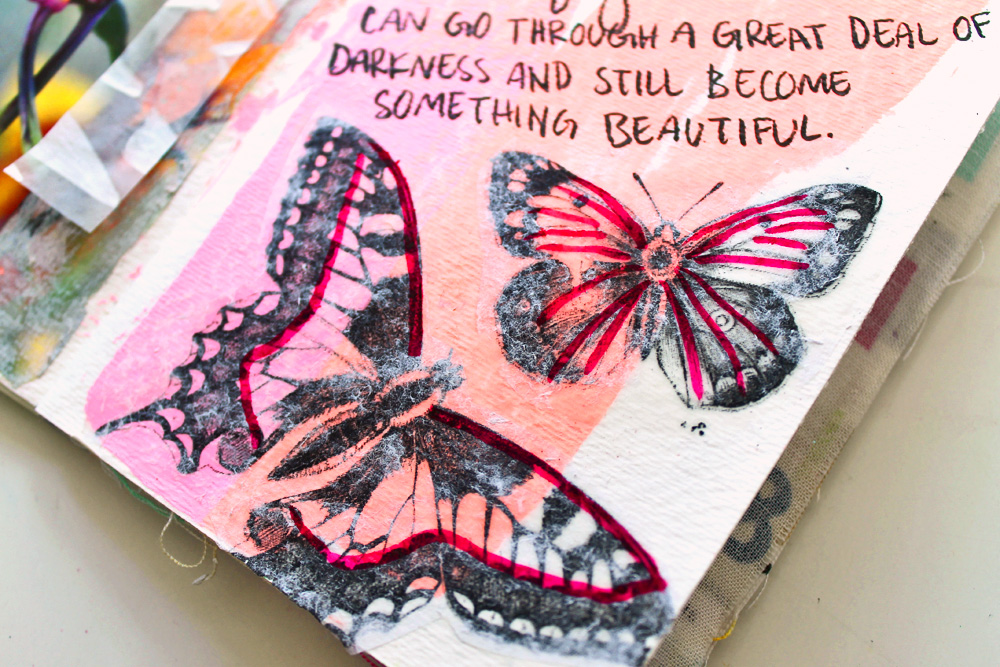 CAN GO THROUGH A GREAT DEAL OF
DARKNESS AND STILL BECOME
SOMETHING BEAUTIFUL.